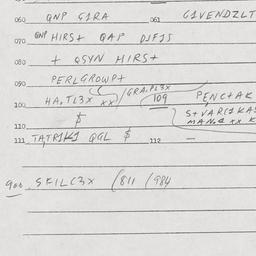 060 GNP G1RA 061 G1VENDZLT
070 GNP HIRS+ GAP DJFJS
080 + QSYN HIRS+
090 PERLGROWP+
100 HA,TL3X XX / GRA,PL3X 109 PENC+AK
$ S+VAR(1KAS
110 MAN,& XX K
111 TATR1K1 QGL $ 112 —
900 SFILC3X (811 /984